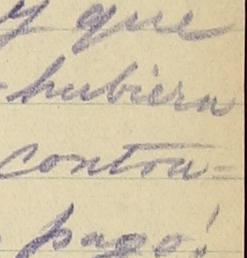 y que
hubiera
conton-
pago!